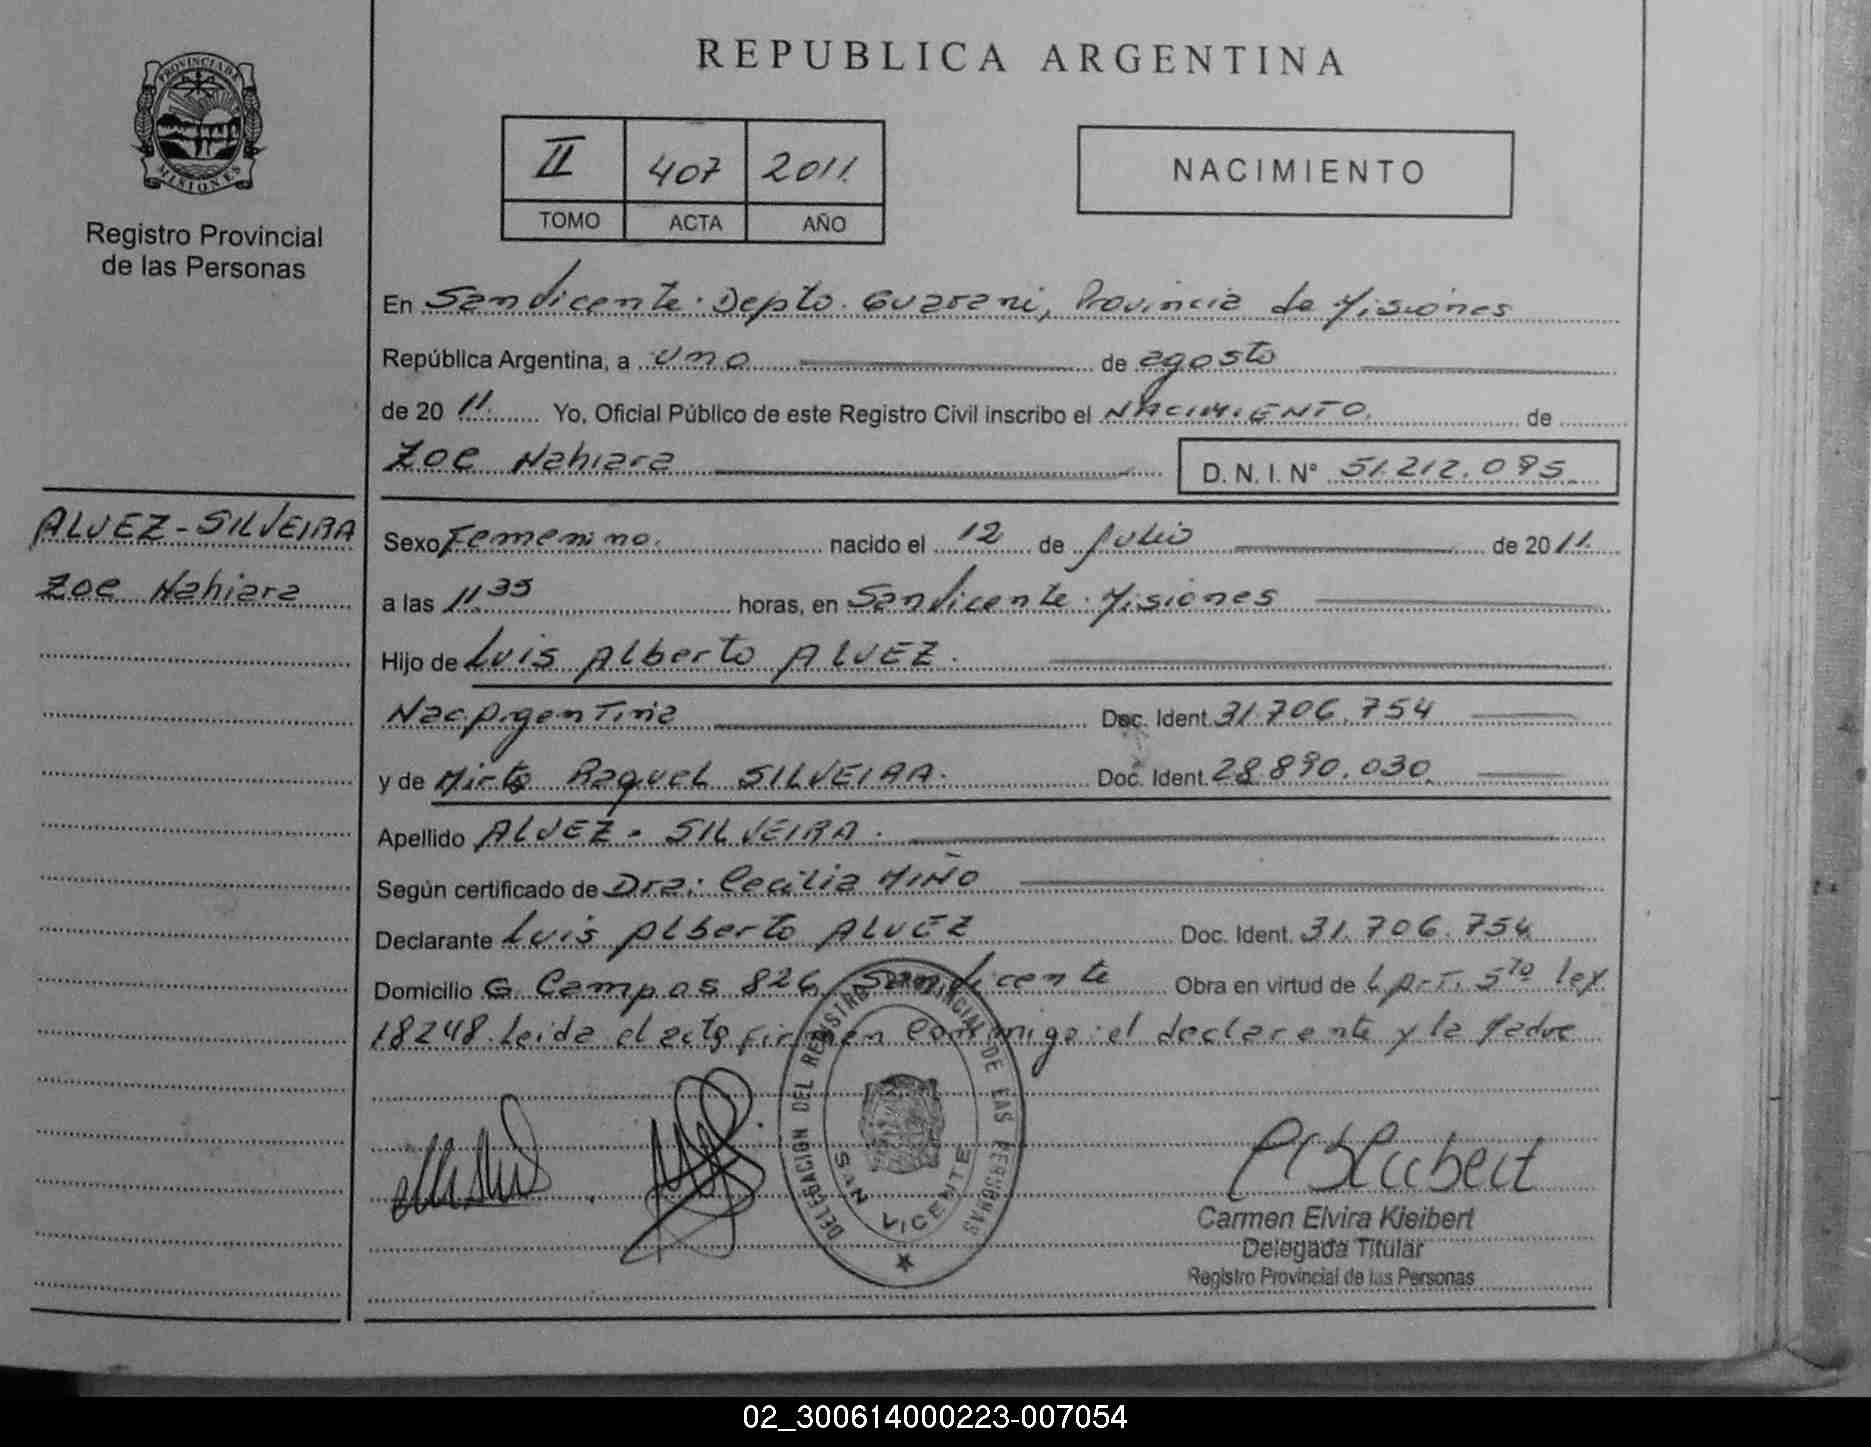 REPUBLICA ARGENTINA
PROVINCIA DE
MISIONES
Registro Provincial
de las Personas
II 407 2011
TOMO ACTA AÑO
NACIMIENTO
En San Vicente. Depto. Guarani, Provincia de Misiones
República Argentina, a uno de agosto
de 20 11. Yo, Oficial Público de este Registro Civil inscribo el NACIMIENTO. de
Zoe Nahiara D. N. I. N° 51.212.095
ALVEZ-SILVEIRA
Zoe Nahiara
Sexo Femenino. nacido el 12 de Julio de 20 11.
a las 11.35 horas, en San Vicente. Misiones
Hijo de Luis Alberto ALVEZ.
Nac. Argentina Doc. Ident. 31.706.754
y de Mirta Raquel SILVEIRA. Doc. Ident. 28.890.030
Apellido ALVEZ - SILVEIRA.
Según certificado de Dra: Cecilia MIÑO
Declarante Luis Alberto ALVEZ Doc. Ident. 31.706.754
Domicilio G. Campos 826, San Vicente Obra en virtud de L. Art. 5to ley
18248. Leida el acta firman conmigo: el declarante y la Madre
DELEGACION DEL REGISTRO PROVINCIAL DE LAS PERSONAS
SAN VICENTE
Carmen Elvira Kleibert
Delegada Titular
Registro Provincial de las Personas
02_300614000223-007054